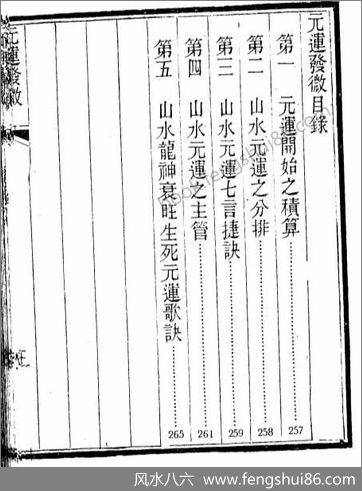 元運發微目錄
第一 元運開始之積算……257
第二 山水元運之分排……258
第三 山水元運七言捷訣……259
第四 山水元運之主管……261
第五 山水龍神衰旺生死元運歌訣……265
元運發微
风水八六 www.fengshui86.com